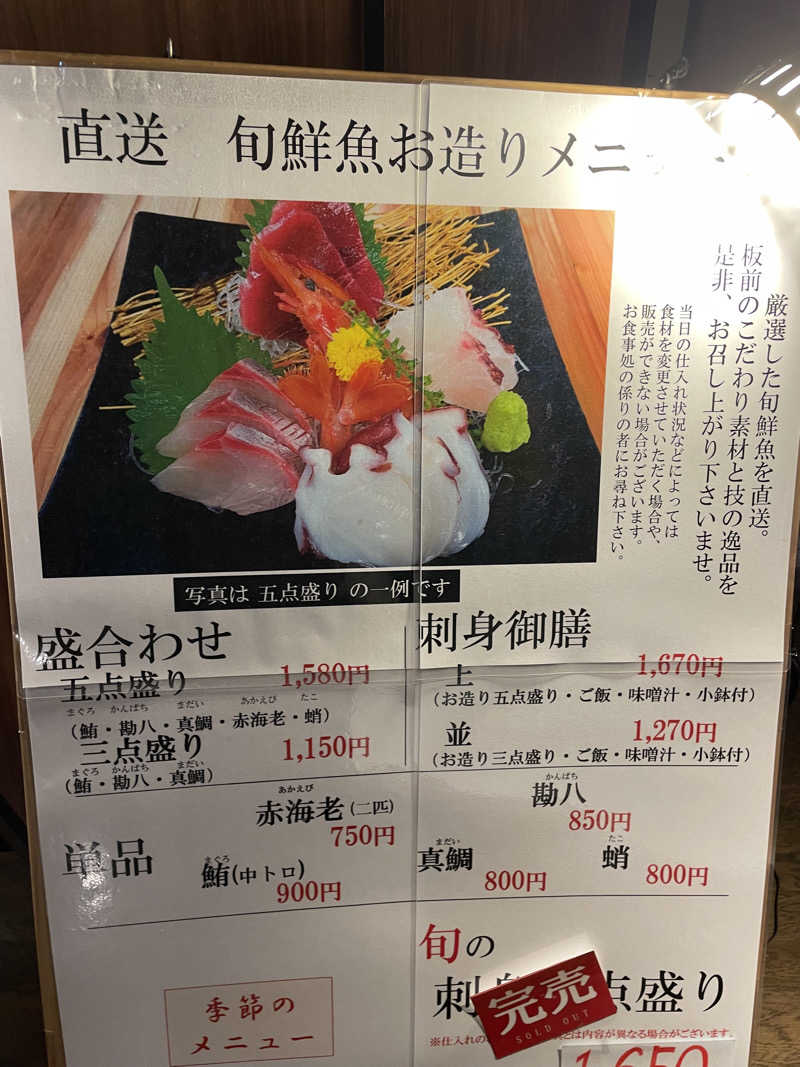 直送　旬鮮魚お造りメニ
厳選した旬鮮魚を直送。
板前のこだわり素材と技の逸品を
是非、お召し上がり下さいませ。
当日の仕入れ状況などによっては
食材を変更させていただく場合や、
販売ができない場合がございます。
お食事処の係りの者にお尋ね下さい。
写真は 五点盛り の一例です
盛合わせ
五点盛り 1,580円
まぐろ かんぱち まだい あかえび たこ
(鮪・勘八・真鯛・赤海老・蛸)
三点盛り 1,150円
まぐろ かんぱち まだい
(鮪・勘八・真鯛)
刺身御膳
上 1,670円
(お造り五点盛り・ご飯・味噌汁・小鉢付)
並 1,270円
(お造り三点盛り・ご飯・味噌汁・小鉢付)
単品
あかえび
赤海老(二匹)
750円
まぐろ
鮪(中トロ)
900円
かんぱち
勘八
850円
まだい
真鯛
800円
たこ
蛸
800円
季節の
メニュー
旬の
刺身 点盛り
完売
SOLD OUT
※仕入れの とは内容が異なる場合がございます。
1,650